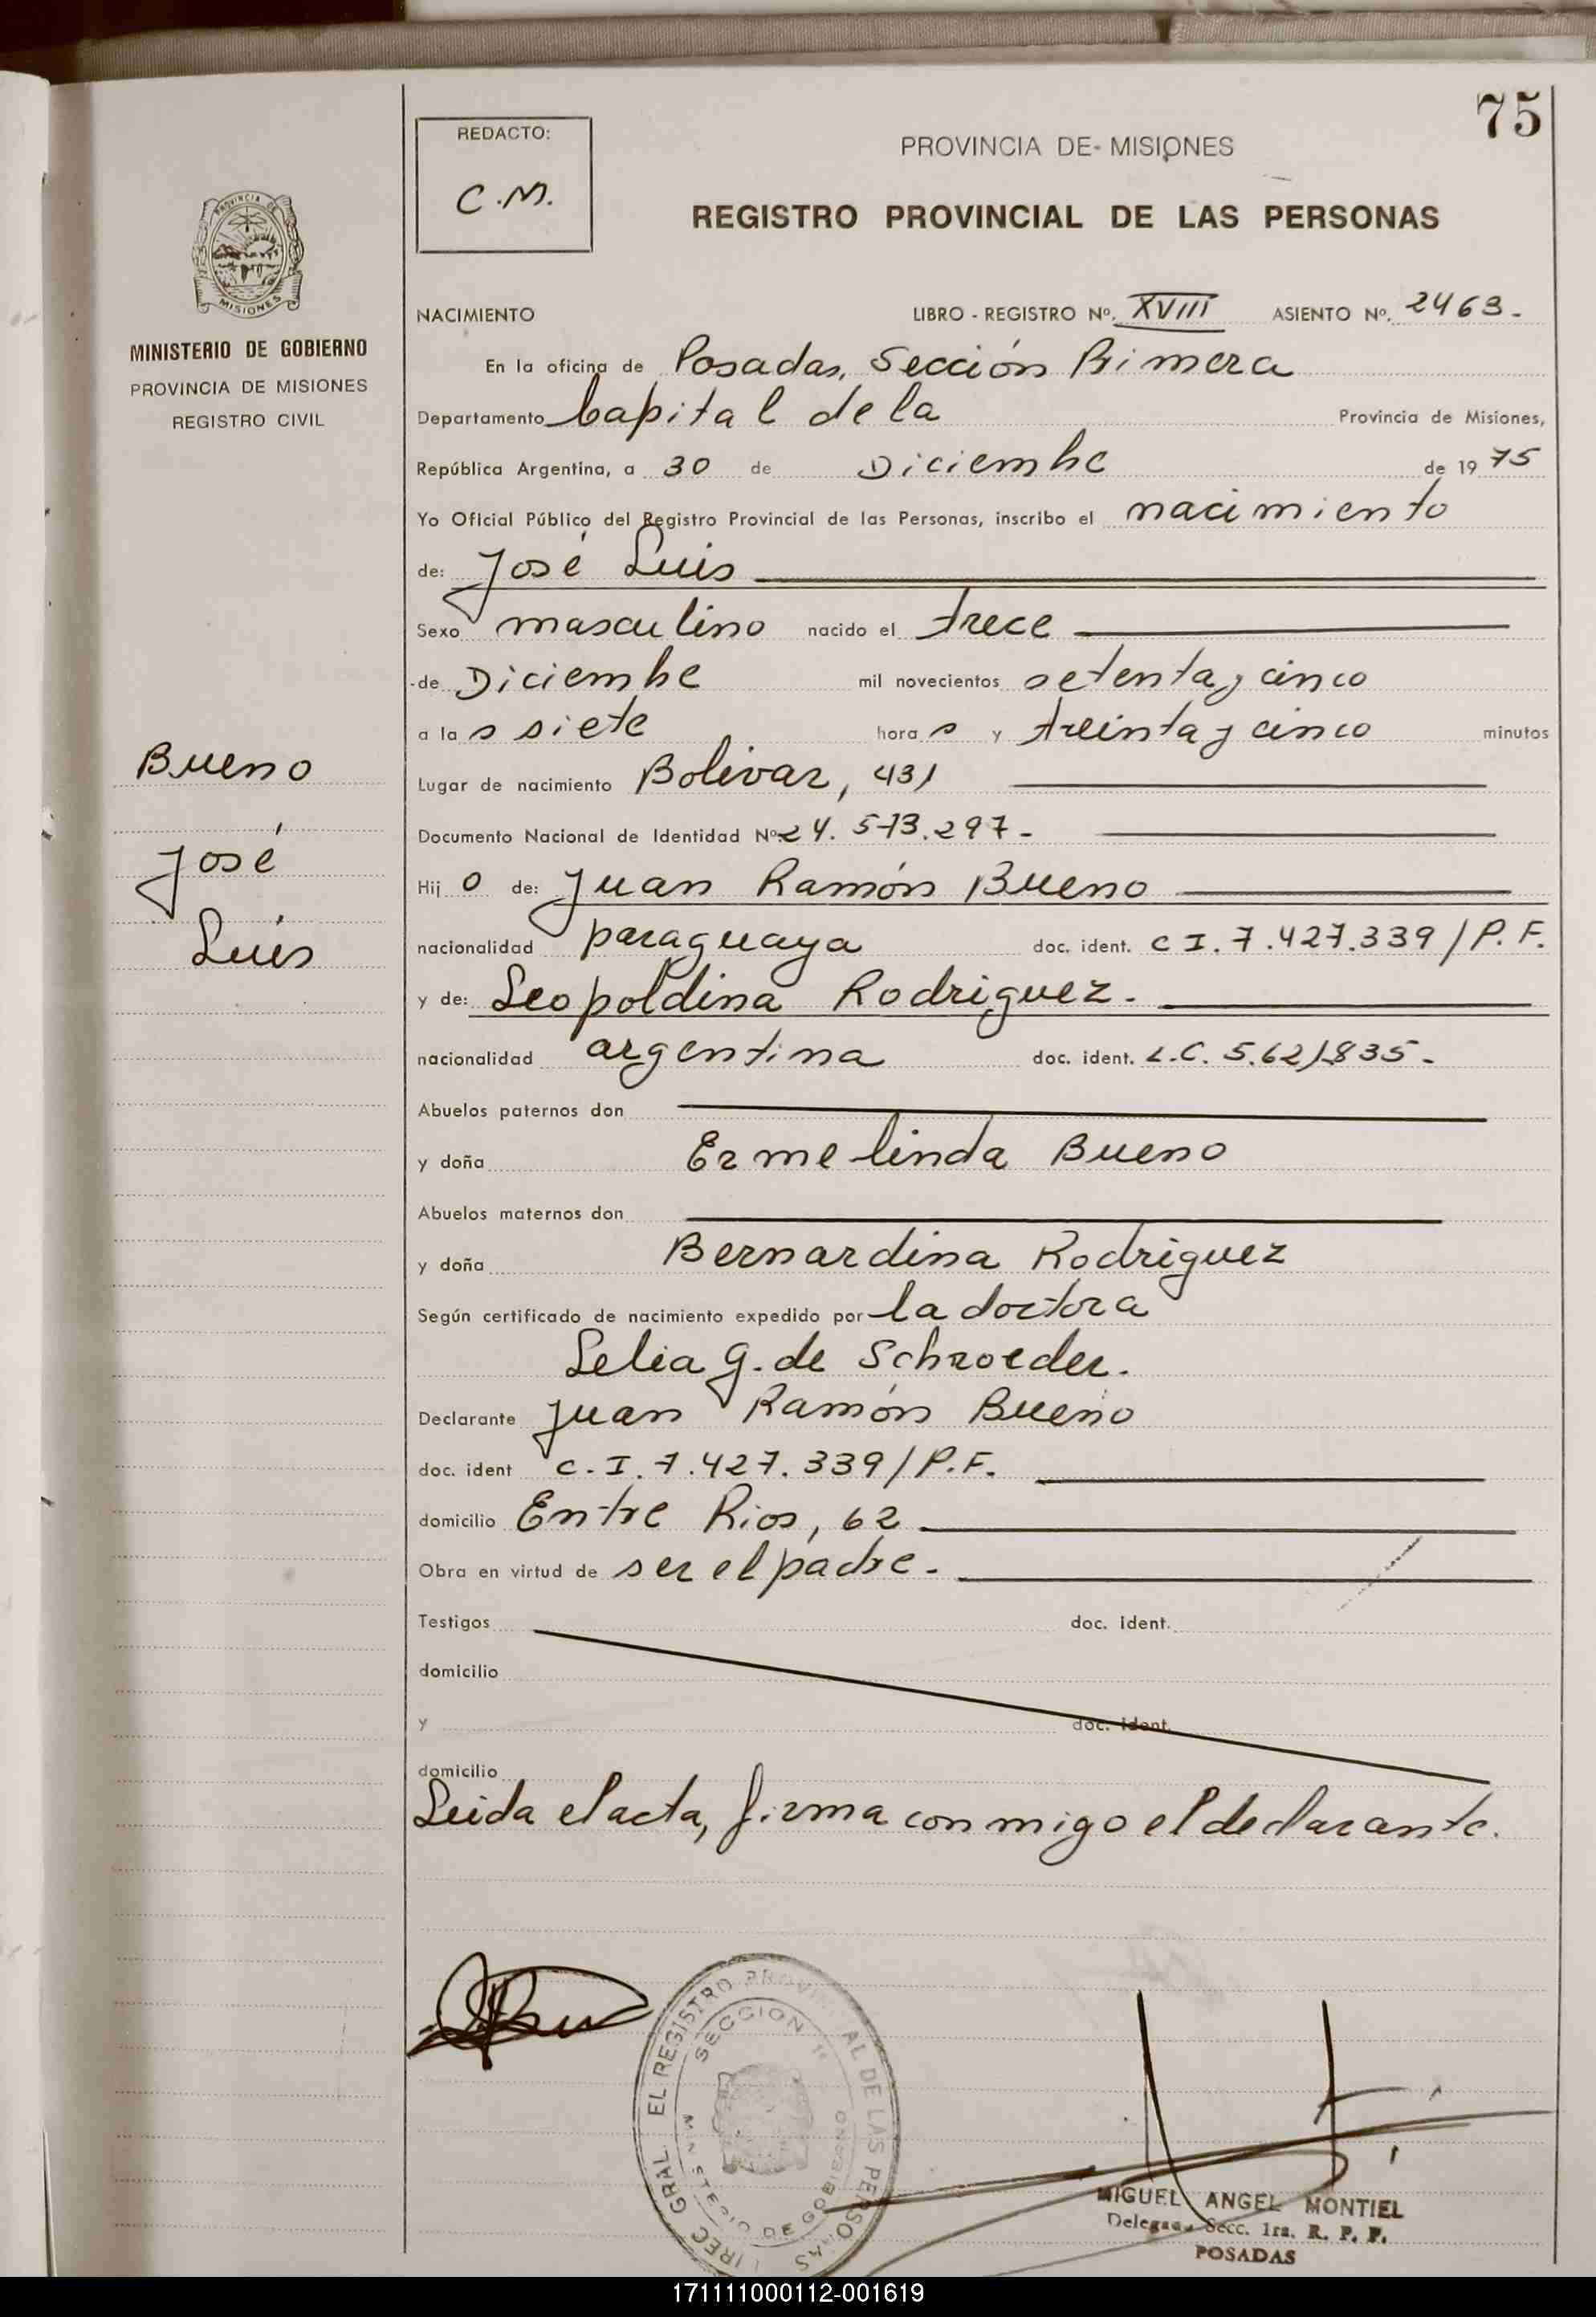 75
REDACTO:
C.M.
PROVINCIA DE MISIONES
REGISTRO PROVINCIAL DE LAS PERSONAS
PROVINCIA DE
MISIONES
MINISTERIO DE GOBIERNO
PROVINCIA DE MISIONES
REGISTRO CIVIL
Bueno
José
Luis
NACIMIENTO LIBRO - REGISTRO Nº. XVIII ASIENTO Nº. 2463.-
En la oficina de Posadas, Sección Primera
Departamento Capital de la Provincia de Misiones,
República Argentina, a 30 de Diciembre de 1975
Yo Oficial Público del Registro Provincial de las Personas, inscribo el nacimiento
de: José Luis
Sexo masculino nacido el trece
de Diciembre mil novecientos setenta y cinco
a las siete horas y treinta y cinco minutos
Lugar de nacimiento Bolivar, 431
Documento Nacional de Identidad Nº 24.573.297-
Hijo de: Juan Ramón Bueno
nacionalidad paraguaya doc. ident. C I. 7.427.339/P.F.
y de: Leopoldina Rodriguez.
nacionalidad argentina doc. ident. L.C. 5.621.835-
Abuelos paternos don
y doña Ermelinda Bueno
Abuelos maternos don
y doña Bernardina Rodriguez
Según certificado de nacimiento expedido por la doctora
Lelia G. de Schroeder.
Declarante Juan Ramón Bueno
doc. ident C.I. 7.427.339/P.F.
domicilio Entre Rios, 62
Obra en virtud de ser el padre.
Testigos doc. ident.
domicilio
y doc. ident.
domicilio
Leida el acta, firma conmigo el declarante.
DIREC GRAL EL REGISTRO PROVINCIAL DE LAS PERSONAS
SECCION 1ª
MINISTERIO DE GOBIERNO
MIGUEL ANGEL MONTIEL
Delegado Secc. 1ra. R. P. P.
POSADAS
171111000112-001619